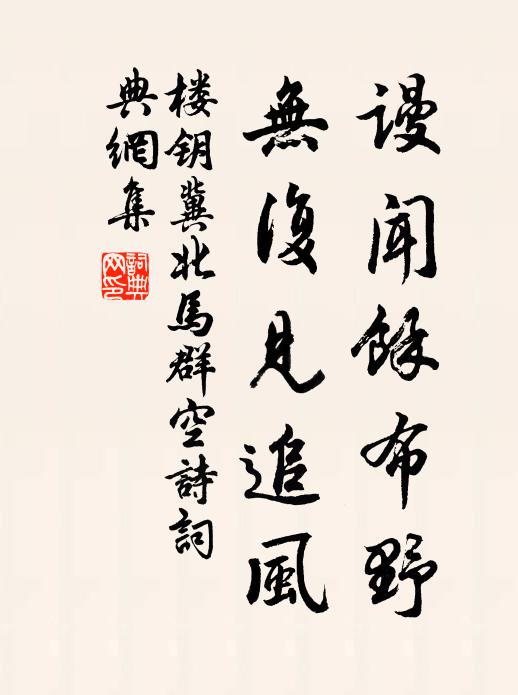 謾聞餘布野
無復見追風
楼钥冀北馬群空詩詞
典網集
詞典網印